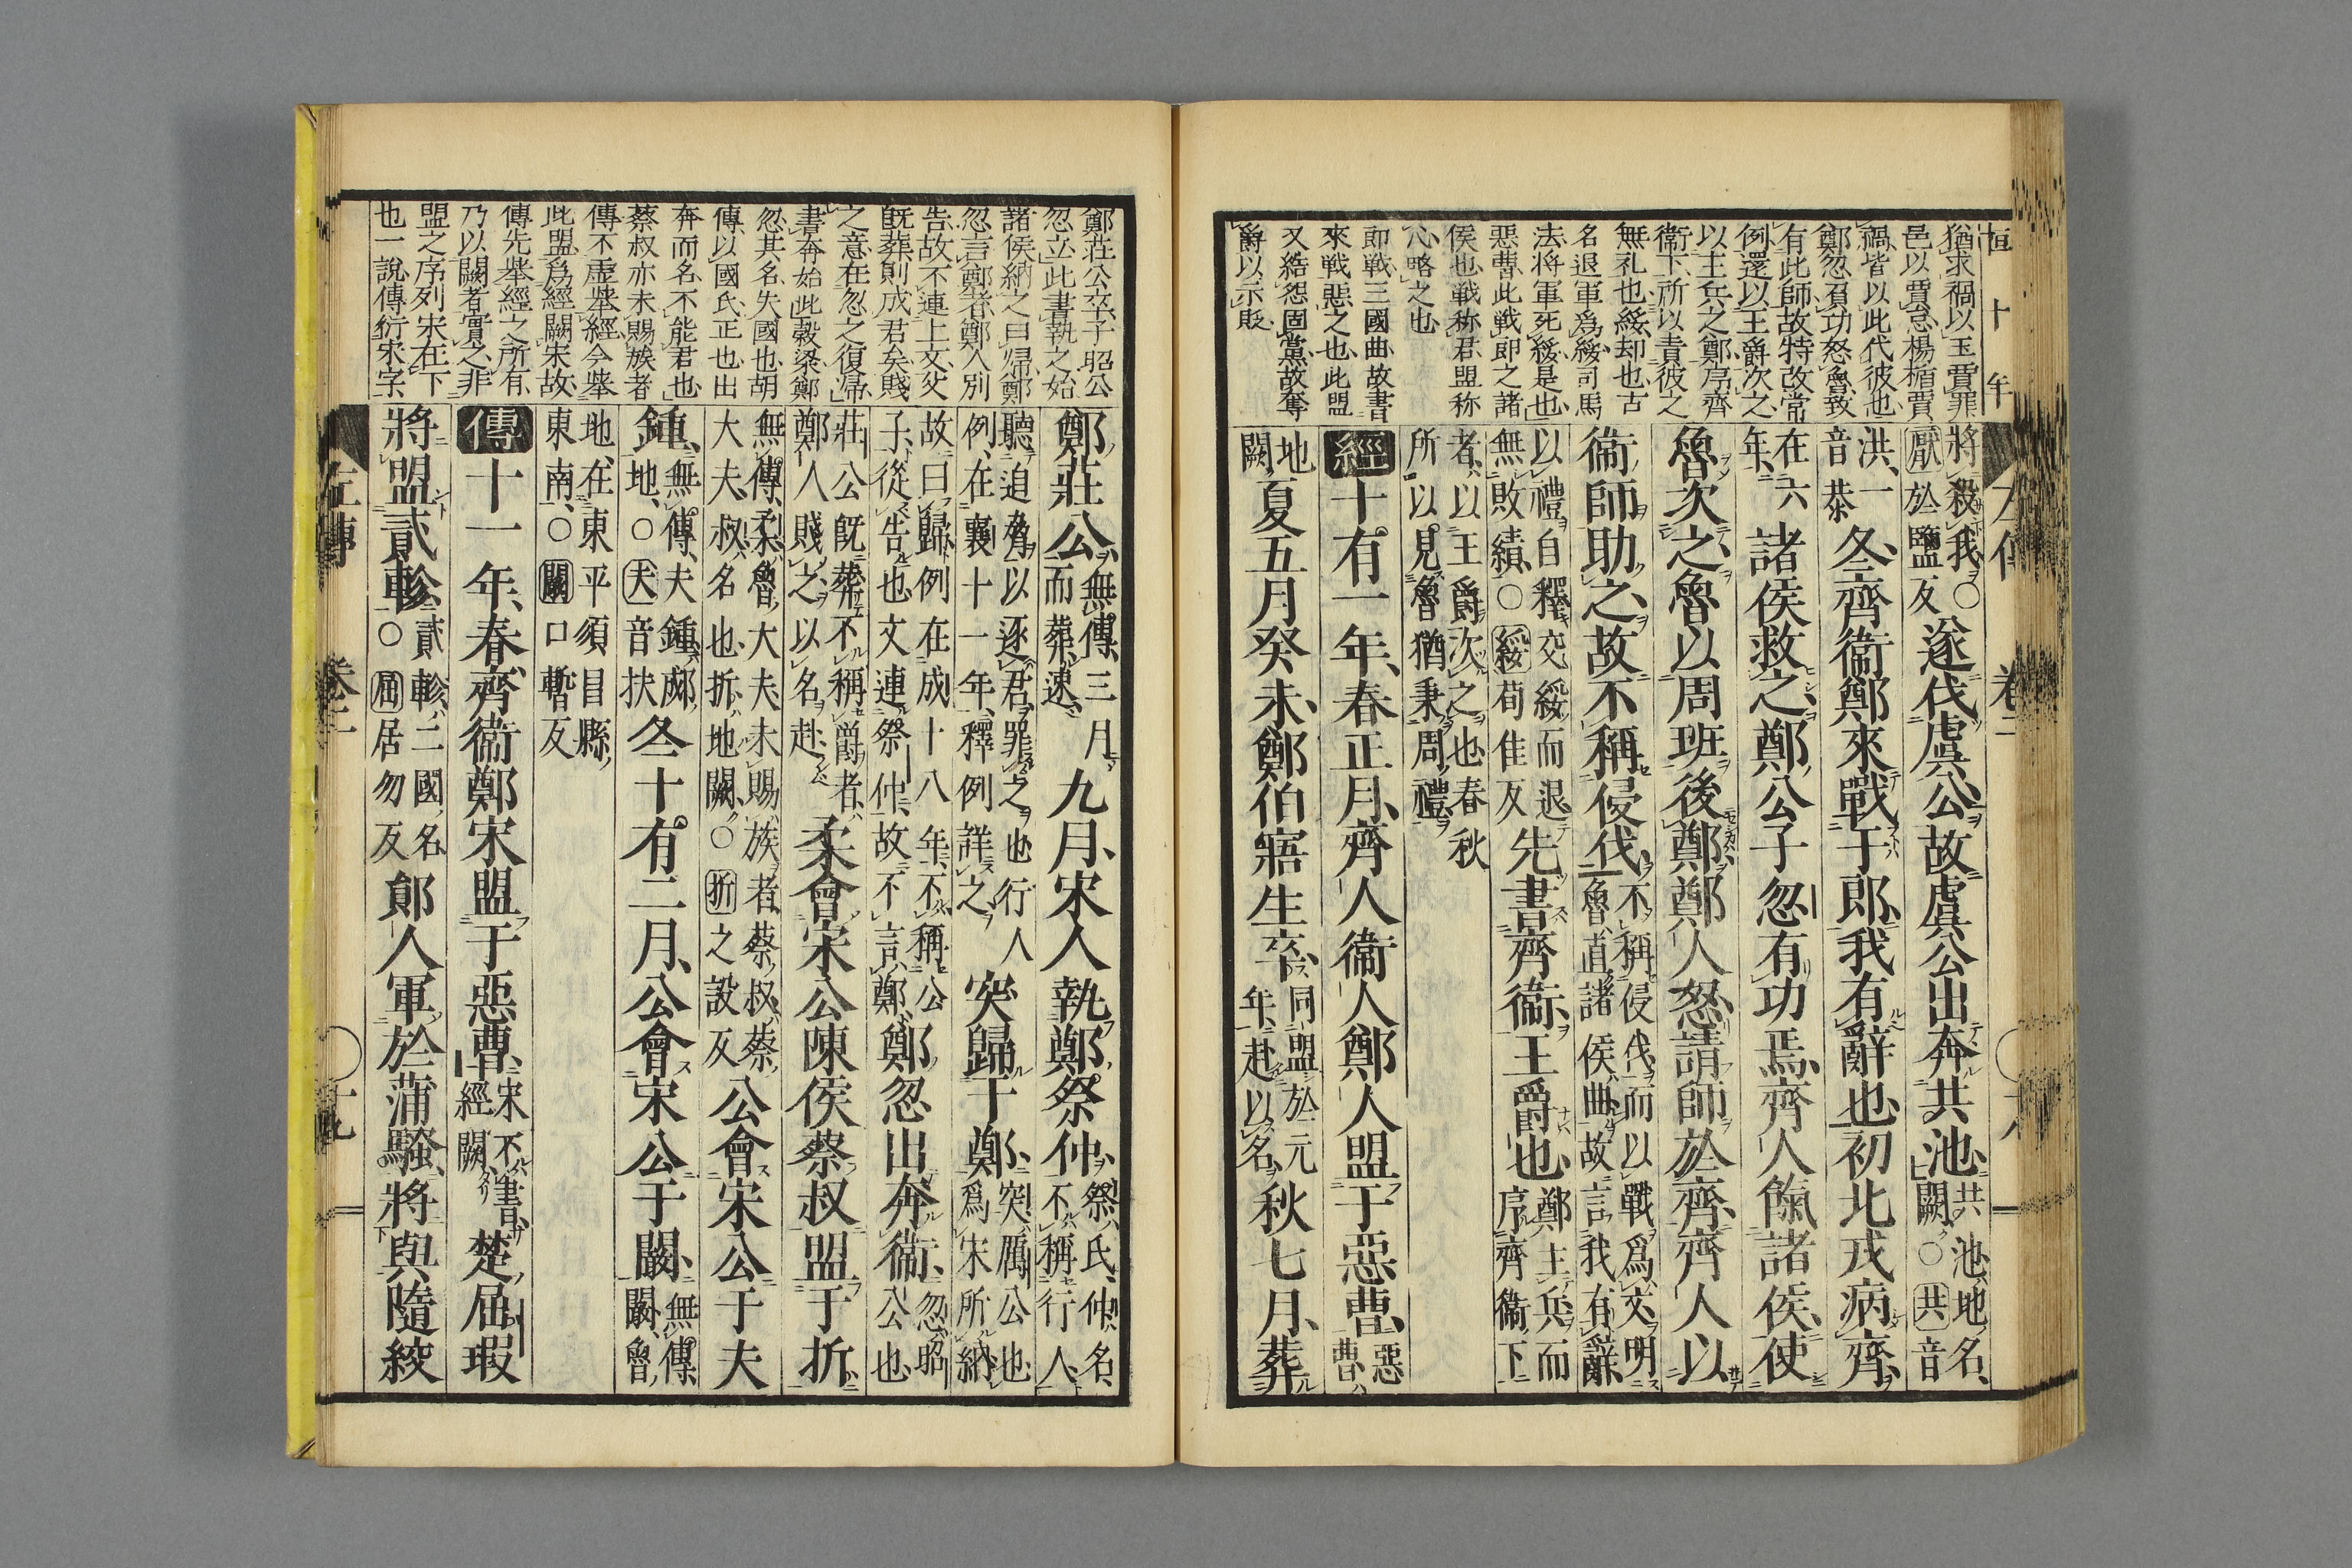 桓十年
猶求禍以玉賈罪
邑以賈怠楊楯賈
禍皆以此代彼也
鄭忽有功怒魯致
有此師故特改常
例還以王爵次之
以主兵之鄭序齊
衛下所以責彼之
無礼也綏却也古
名退軍爲綏司馬
法将軍死綏是也
惡曹此戦即之諸
侯也戦称君盟称
人略之也
即戦三國曲故書
來戦惡之也此盟
又結怨固黨故奪
爵以示貶
左傳 卷二 ○十八
將殺我○厭於鹽反遂伐虞公故虞公出奔共池共池地名闕○共音
洪一音恭冬齊衞鄭來戰于郎我有辭也初北戎病齊
在六年諸侯救之鄭公子忽有功焉齊人餼諸侯使
魯次之魯以周班後鄭鄭人怒請師於齊齊人以
衞師助之故不稱侵伐不稱侵伐而以戰爲文明魯直諸侯曲故言我有辭
以禮自釋交綏而退無敗績○綏荀隹反先書齊衞王爵也鄭主兵而序齊衞下
者以王爵次之也春秋所以見魯猶秉周禮
經十有一年春正月齊人衞人鄭人盟于惡曹惡曹
地闕夏五月癸未鄭伯寤生卒同盟於元年赴以名秋七月葬
鄭莊公卒子昭公
忽立此書執之始
諸侯納之曰帰鄭
忽言鄭者鄭人別
告故不連上文矣
既葬則成君矣賤
之意在忽之復帰
書奔始此穀梁鄭
忽其名失國也胡
傳以國氏正也出
奔而名不能君也
蔡叔亦未賜族者
傳不虛挙經今挙
此盟爲經闕宋故
傳先挙經之所有
乃以闕者實之非
盟之序列宋在下
也一説傳衍宋字
鄭莊公無傳三月而葬速九月宋人執鄭祭仲祭氏仲名不稱行人
聽迫脅以逐君罪之也行人例在襄十一年釋例詳之突歸于鄭突厲公也爲宋所納
故曰歸例在成十八年不稱公子從告也文連祭仲故不言鄭鄭忽出奔衞忽昭公也
莊公既葬不稱爵者鄭人賤之以名赴柔會宋公陳侯蔡叔盟于折
無傳柔魯大夫未賜族者蔡叔蔡大夫叔名也折地闕○折之設反公會宋公于夫
鍾無傳夫鍾郕地○夫音扶冬十有二月公會宋公于闞無傳闞魯
地在東平須昌縣東南○闞口暫反
傳十一年春齊衞鄭宋盟于惡曹宋不書經闕楚屈瑕
將盟貳軫貳軫二國名○屈居勿反鄖人軍於蒲騷將與隨絞
左傳 卷二 ○十九